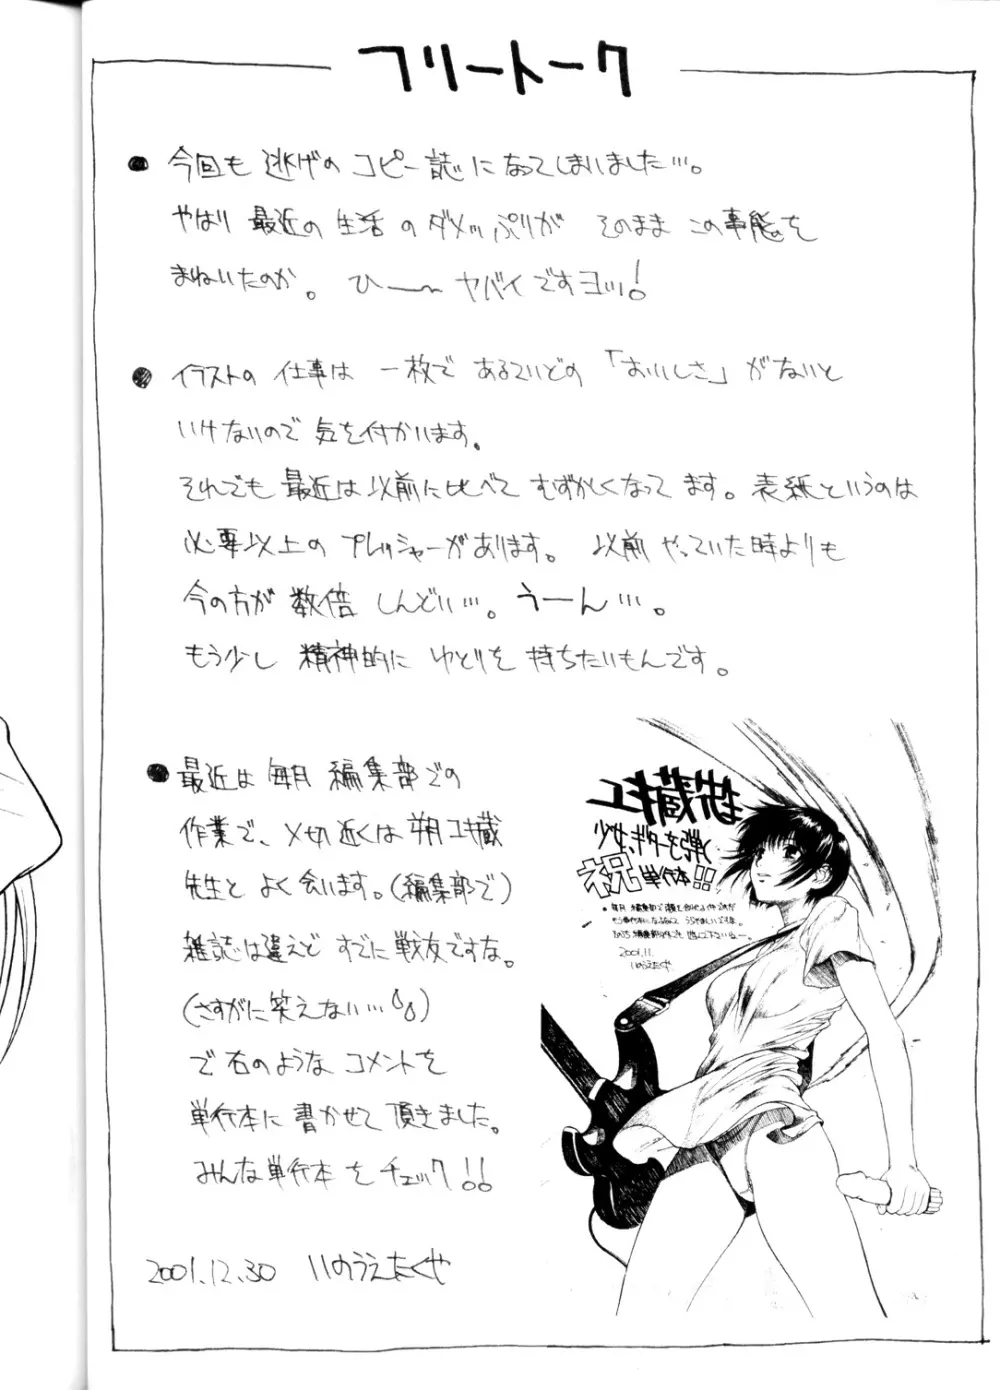 フリートーク
● 今回も 逃げの コピー誌に なってしまいました…。
やはり 最近の 生活 の ダメッぷりが そのまま この事態を
まねいたのか。 ひー〜 ヤバイ ですヨッ!
● イラストの 仕事は 一枚で あるていどの 「おいしさ」が ないと
いけないので 気を付かいます。
それでも 最近は 以前に比べて むずかしくなって ます。 表紙というのは
必要以上の プレッシャーが あります。 以前 やっていた時よりも
今の方が 数倍 しんどい…。 うーん…。
もう少し 精神的に ゆとりを 持ちたいもんです。
● 最近は 毎月 編集部での
作業で、〆切 近くは 朔ユキ蔵
先生と よく会います。(編集部で)
雑誌は違えど すでに 戦友ですな。
(さすがに笑えない…)
で 右のような コメントを
単行本に 書かせて 頂きました。
みんな 単行本 を チェック!!
2001.12.30 いのうえたくや
ユキ蔵先生
少女、ギターを弾く
祝 単行本!!
2001.11.
いのうえたくや